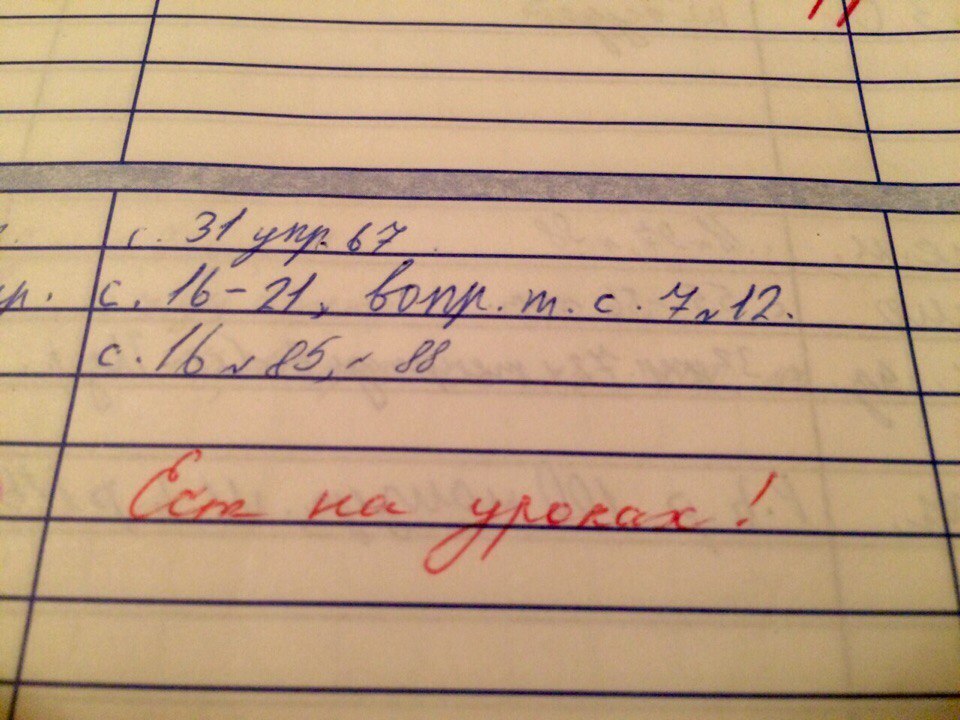 с. 31 упр. 67
р. с. 16-21, вопр. т. с. 7 № 12.
с. 16 № 85, № 88
Ест на уроках!